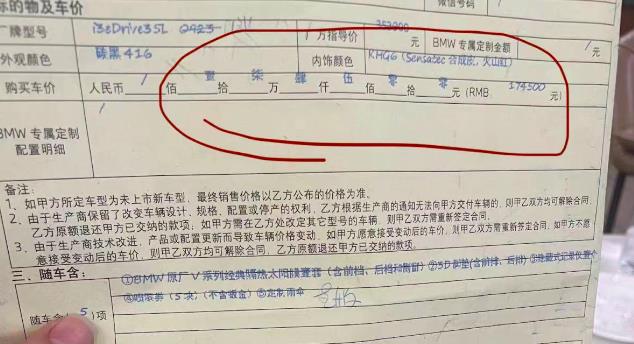 标的物及车价
微信号码
厂牌型号 i3eDrive35L 0423 厂方指导价 353900 元 BMW 专属定制金额 / 元
外观颜色 碳黑416 内饰颜色 KHGG (Sensatec 合成皮, 火山红)
购买车价 人民币 / 佰 壹 拾 柒 万 肆 仟 伍 佰 零 拾 零 元 (RMB 174500 元)
BMW 专属定制
配置明细 /
备注:
1、如甲方所定车型为未上市新车型,最终销售价格以乙方公布的价格为准。
2、由于生产商保留了改变车辆设计、规格、配置或停产的权利,乙方根据生产商的通知无法向甲方交付车辆的,则甲乙双方均可解除合同,
乙方原额退还甲方已交纳的款项;如甲方需在乙方处改定其它型号的车辆,则甲乙双方需重新签定合同。
3、由于生产商技术改进,产品或配置更新而导致车辆价格变动,如甲方愿意接受变动后的车价,则甲乙双方需重新签定合同;如甲方不愿
意接受变动后的车价,则甲乙双方均可解除合同,乙方原额退还甲方已交纳的款项。
三、随车含:
随车含 5 项 ①BMW原厂V系列经典隔热太阳膜套装(含前档、后档和侧窗) ②5D脚垫(含前排、后排) ③隐藏式记录仪
④喷漆券(5次)(不含钣金) ⑤定制雨伞